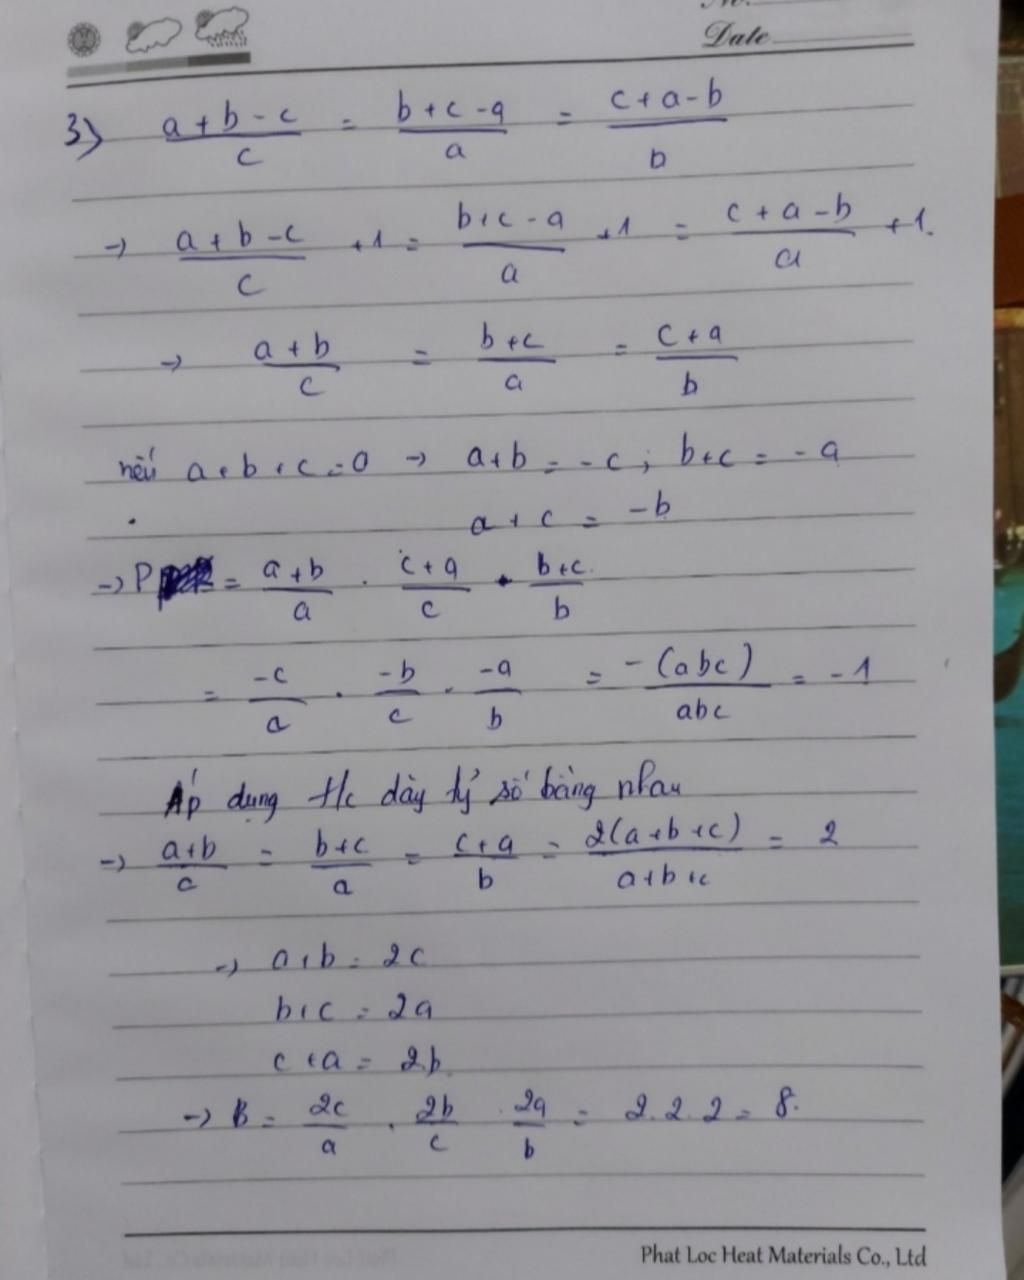 Date
3) (a + b - c)/c = (b + c - a)/a = (c + a - b)/b
→ (a + b - c)/c + 1 = (b + c - a)/a + 1 = (c + a - b)/a + 1.
→ (a + b)/c = (b + c)/a = (c + a)/b
nếu a + b + c = 0 → a + b = - c ; b + c = - a
a + c = - b
→ P = (a + b)/a . (c + a)/c . (b + c)/b
= -c/a . -b/c . -a/b = -(abc)/abc = - 1
Áp dụng t/c dãy tỷ số bằng nhau
→ (a + b)/c = (b + c)/a = (c + a)/b = 2(a + b + c)/(a + b + c) = 2
→ a + b = 2c
b + c = 2a
c + a = 2b
→ B = 2c/a . 2b/c . 2a/b = 2. 2. 2 = 8.
Phat Loc Heat Materials Co., Ltd